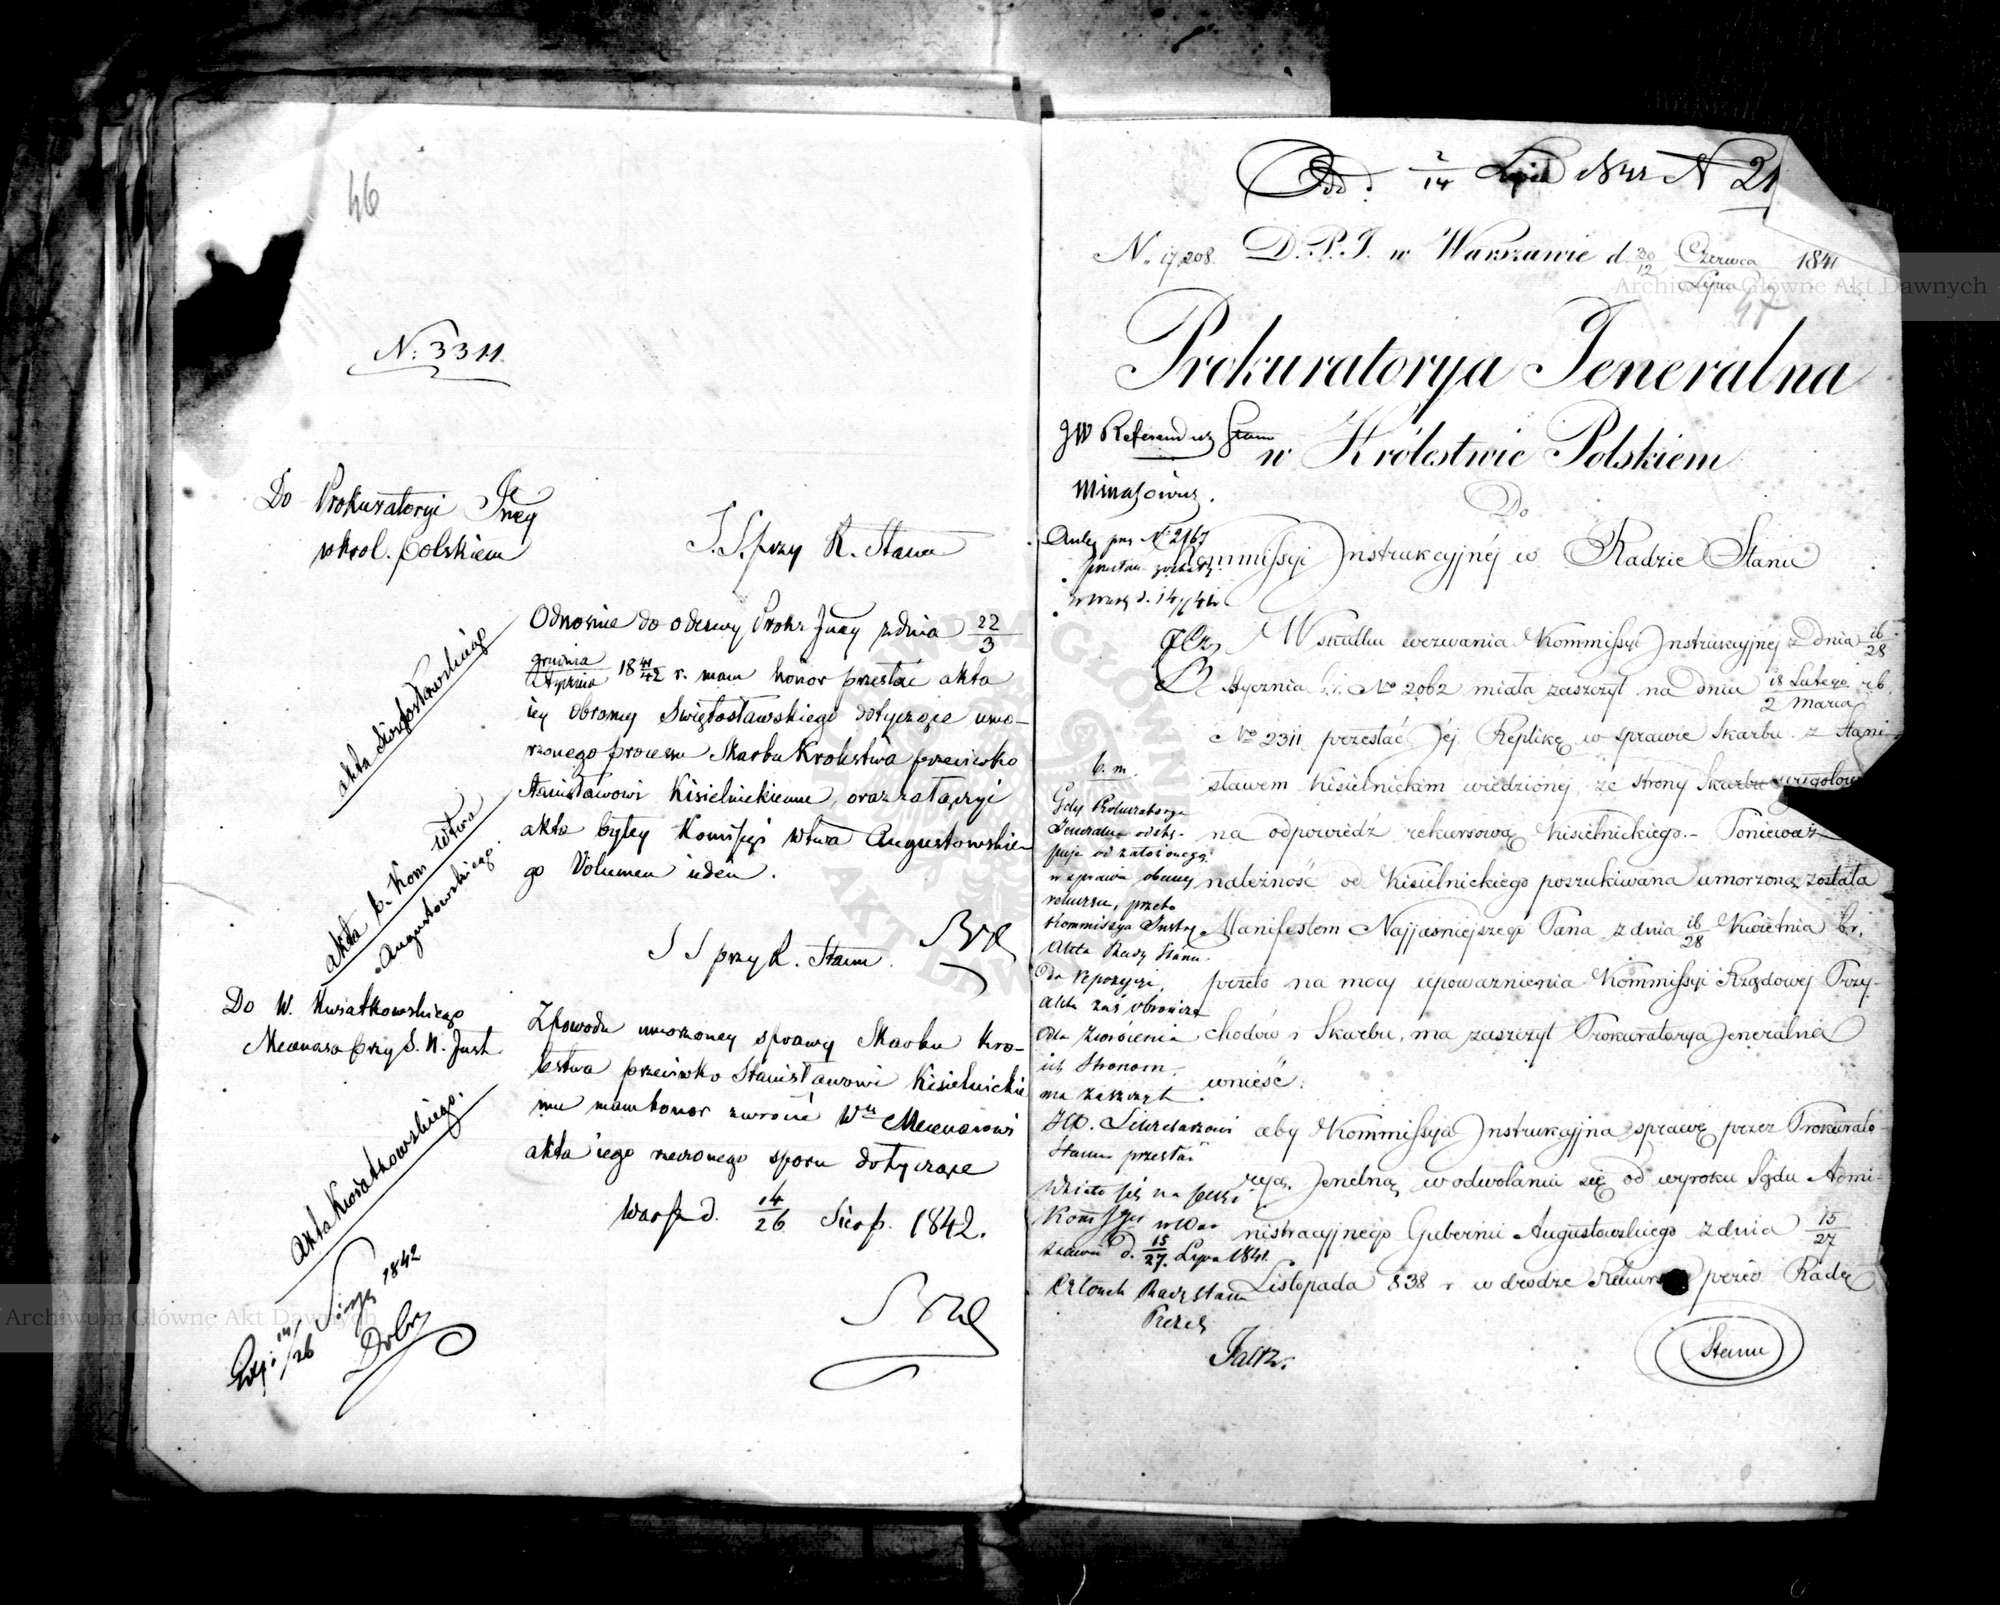 46
N: 3311.
Do Prokuratoryi Jney
w Krol. Polskiem
S. S. przy R. Stanu
Odnośnie do odezwy Prokr Jney z dnia 22/3
grudnia/stycznia 18 41/42 r. mam honor przesłać akta
iey obrony Świętosławskiego dotyczące umo-
rzonego procesu Skarbu Krolestwa przeciwko
Stanisławowi Kisielnickiemu, oraz załączyć
akta byłey Komissyi Wtwa Augustowskie-
go Volumen ieden.
S S przy R. Stanu.
akta Świętosławskiego
akta b. Kom Wtwa
Augustowskiego.
Do W. Kwiatkowskiego
Mecenasa przy S. N. Just
Z powodu umorzoney sprawy Skarbu Kro-
lestwa przeciwko Stanisławowi Kisielnickie
mu mam honor zwrocić Wu Mecenasowi
akta iego rzeczonego sporu dotyczące
Warsz d. 14/26 Sierp. 1842.
akta Kwiatkowskiego.
14/26 1842
Archiwum Główne Akt Dawnych
Odd. 2/14 Lipca 1841 N 21
N. 17,208. D.P.J. w Warszawie d. 30/12 Czerwca/Lipca 1841
Archiwum Główne Akt Dawnych
47
Prokuratorya Jeneralna
w Królestwie Polskiem
JW Referendarz Stanu
Minasowicz.
Do
Kommissyi Instrukcyjnéj w Radzie Stanu
W skutku wezwania Kommissyi Instrukcyjnéj z dnia 16/28
Stycznia b.r. No 2062 miała zaszczyt na dniu 18 Lutego/2 Marca r.b.
No 2311 przesłać Jéj Replikę w sprawie Skarbu z Stani-
sławem Kisielnickim wiedzionéj, ze strony Skarbu
na odpowiedź rekursową Kisielnickiego. - Ponieważ
należność od Kisielnickiego poszukiwana umorzoną została
Manifestem Najjaśniejszego Pana z dnia 16/28 Kwietnia br.
przeto na mocy upoważnienia Kommissyi Rządowej Przy-
chodów i Skarbu, ma zaszczyt Prokuratorya Jeneralna
wnieść:
aby Kommissya Instrukcyjna sprawę przez Prokurato-
ryą Jenelną w odwołaniu się od wyroku Sądu Admi-
nistracyjnego Gubernii Augustowskiego z dnia 15/27
Listopada 838 r. w drodze Rekursu przed Radę
Stanu
b. m.
Gdy Prokuratorya
Jeneralna odstę-
puje od założonego
w sprawie obecnej
rekursu, przeto
Kommissya Instr
Akta Rady Stanu
Do repozycyi,
Akta zaś obrończe
Dla zwrócenia
ich Stronom,
ma zaszczyt
JW. Sekretarzowi
Stanu przesłać
Działo się na posie
Komssyi w War
szawie d. 15/27. Lipca 1841.
Członek Rady Stanu
Prezes